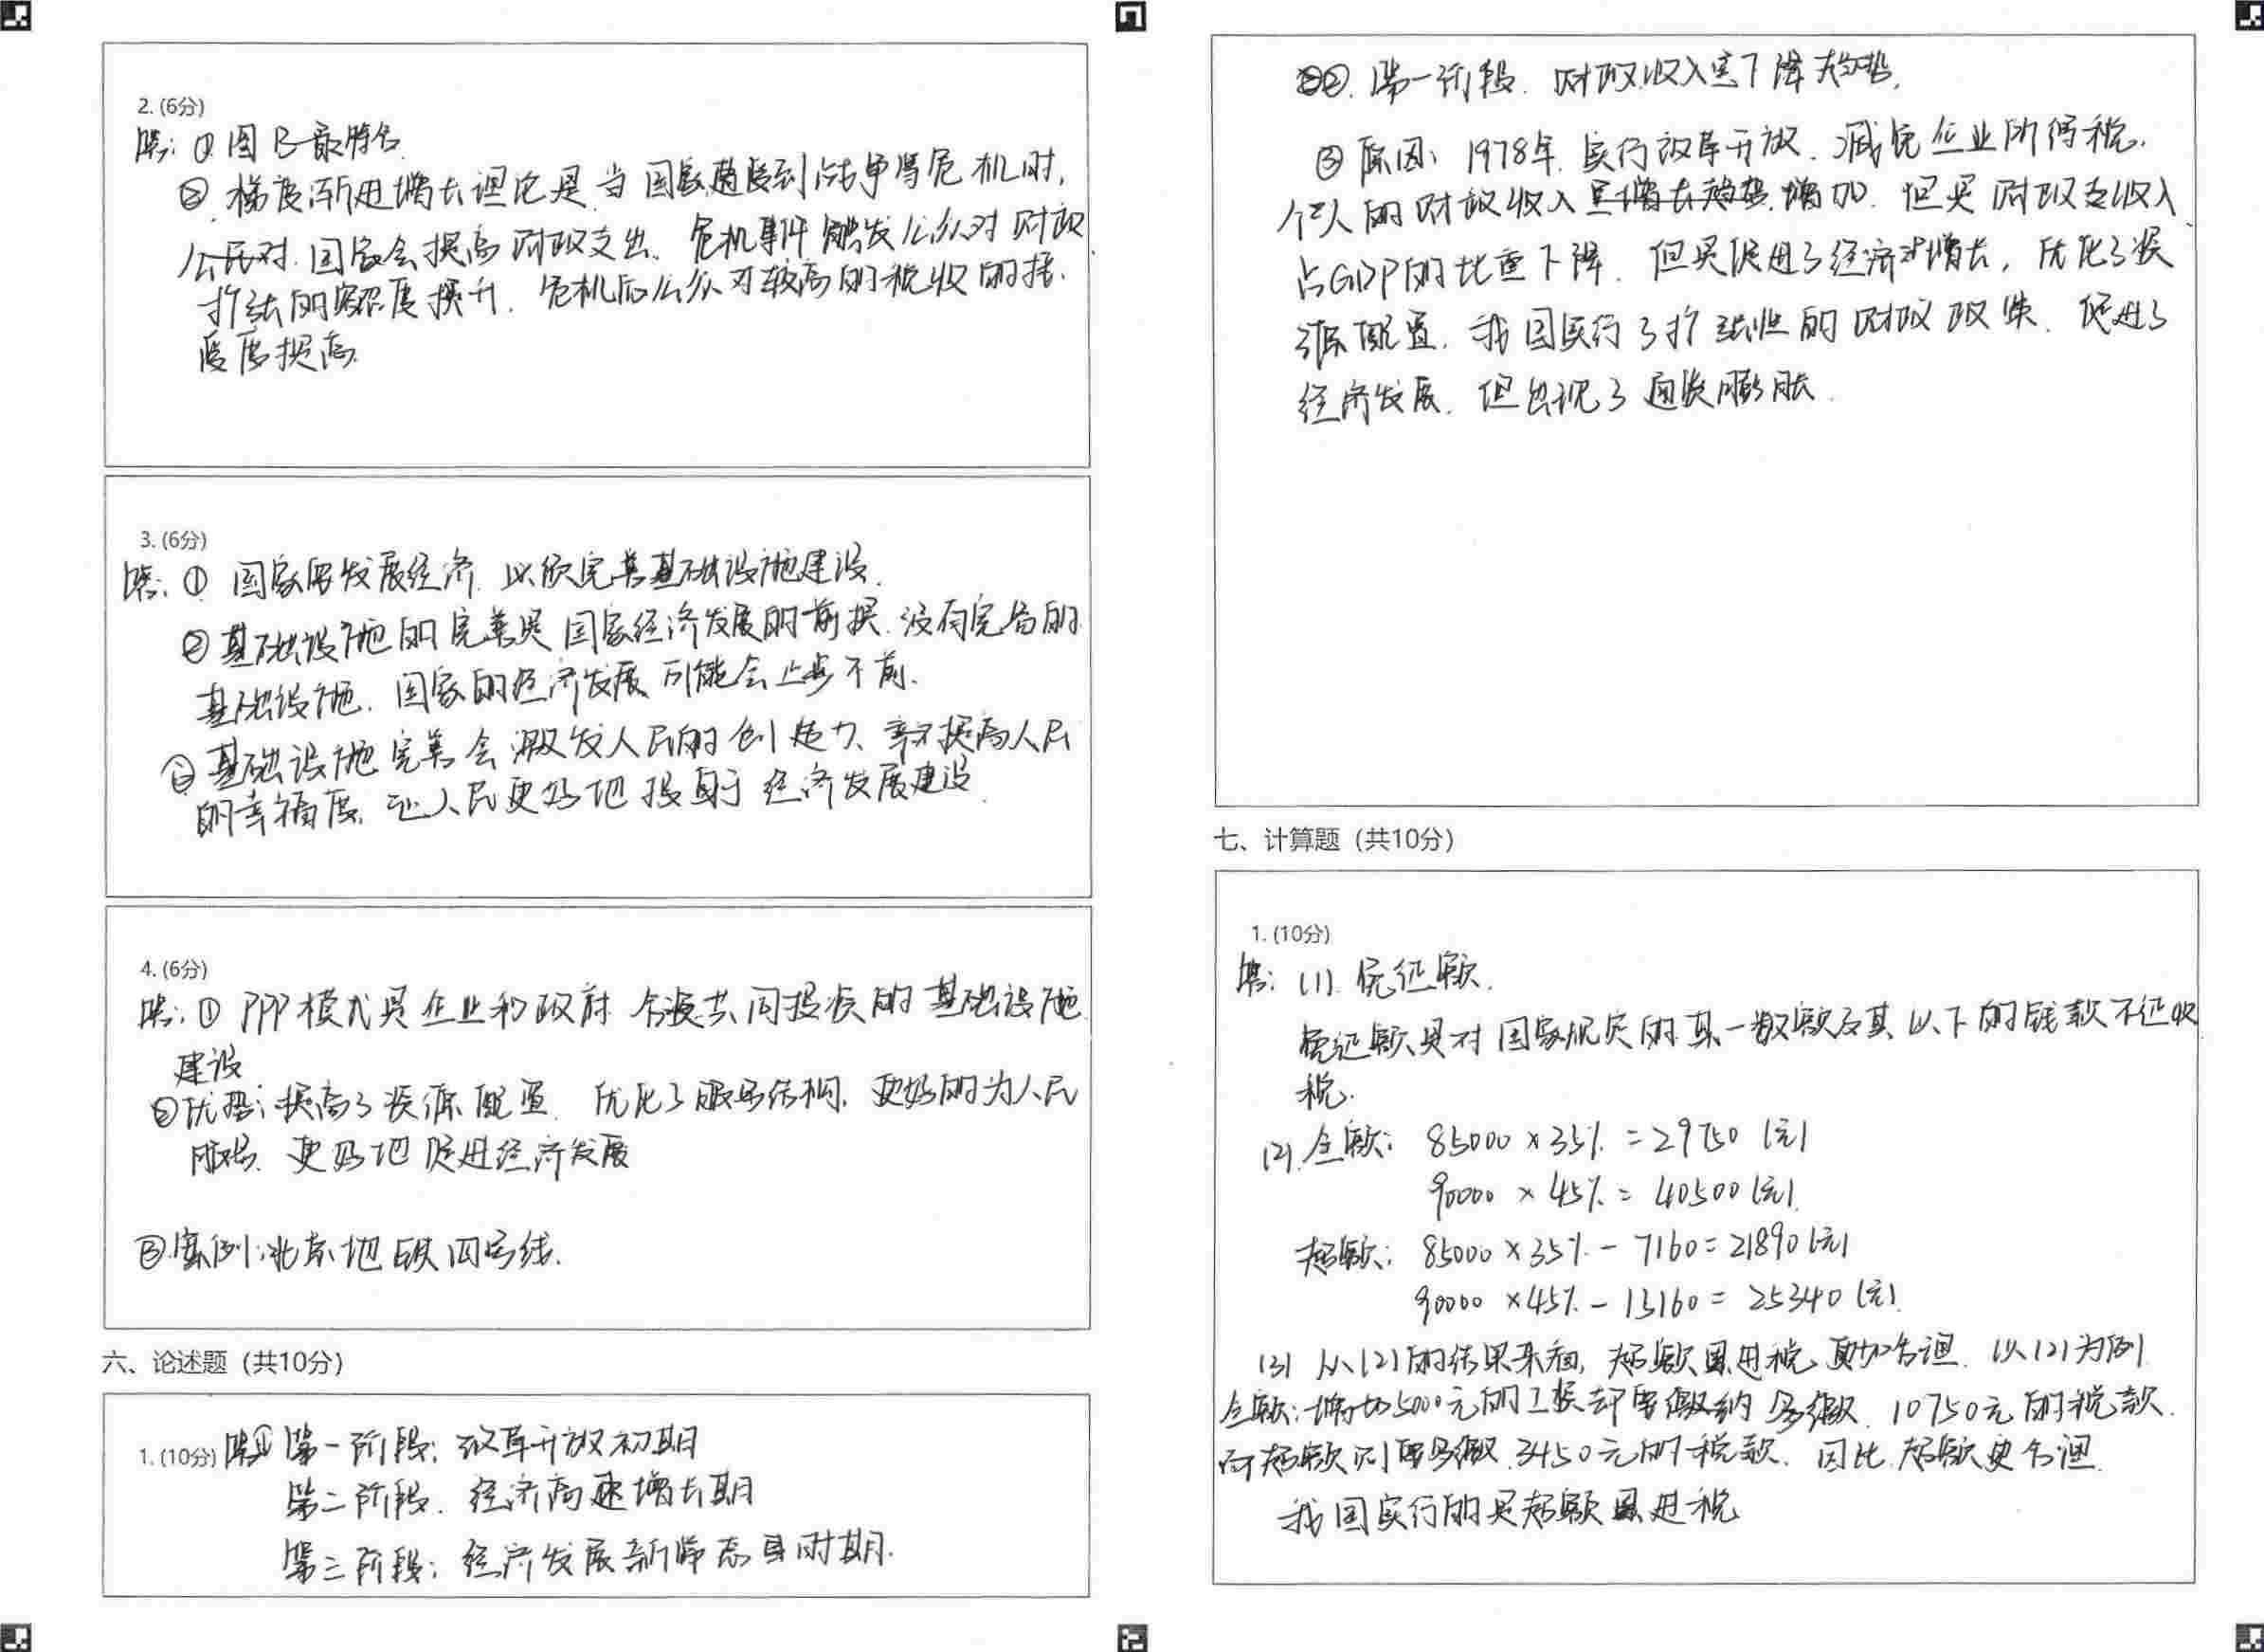 2. (6分)
答: ① 图B最符合.
② 梯度渐进增长理论是 当国家遭受到战争等危机时,
公民对 国家会提高财政支出. 危机事件触发公众对财政
扩张的容忍度提升. 危机后公众对较高的税收的括
度度提高.
3. (6分)
答: ① 国家要发展经济. 必须完善基础设施建设.
② 基础设施的完善是国家经济发展的前提. 没有完善的
基础设施. 国家的经济发展可能会止步不前.
③ 基础设施完善会激发人民的创造力. 幸不提高人民
的幸福度. 让人民更好地投身于经济发展建设.
4. (6分)
答: ① PPP模式是企业和政府 合资共同投资的基础设施
建设
② 优势: 提高了资源配置. 优化了服务结构. 更好的为人民
服务. 更好地促进经济发展
③ 案例: 北京地铁四号线.
六、论述题（共10分）
1. (10分) 答① 第一阶段: 改革开放初期
第二阶段. 经济高速增长期
第三阶段: 经济发展新常态时期.
②. 第一阶段. 财政收入呈下降趋势.
③ 原因: 1978年. 实行改革开放. 减免企业所得税.
个人的财政收入呈增长趋势.增加. 但是财政收入
占GDP的比重下降. 但是促进了经济增长, 优化了资
源配置. 我国实行了扩张性的财政政策. 促进了
经济发展. 但出现了通货膨胀.
七、计算题（共10分）
1. (10分)
答: (1). 免征额.
免征额是对国家规定的某一数额及其以下的钱款不征收
税.
(2). 全额: 85000×35%=29750(元)
90000×45%=40500(元).
超额: 85000×35%-7160=21890(元)
90000×45%-15160=25340(元).
(3) 从(2)的结果来看, 超额累进税更加合理. 以(2)为例
全额: 增加5000元的工资却要缴纳多缴 10750元的税款.
而超额则要多缴 3450元的税款. 因此.超额更合理.
我国实行的是超额累进税